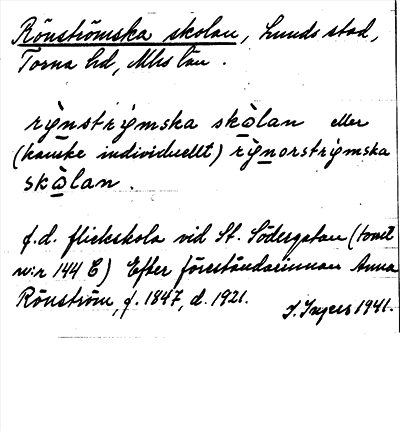 Rönströmska skolan, Lunds stad,
Torna hd, Mhs län.
rø̀nstrømska skålan eller
(kanske individuellt) rø̀norstrømska
skålan.
f.d. flickskola vid St. Södergatan (tomt
n:r 144 C) Efter föreståndarinnan Anna
Rönström, f. 1847, d. 1921.
I. Ingers 1941.